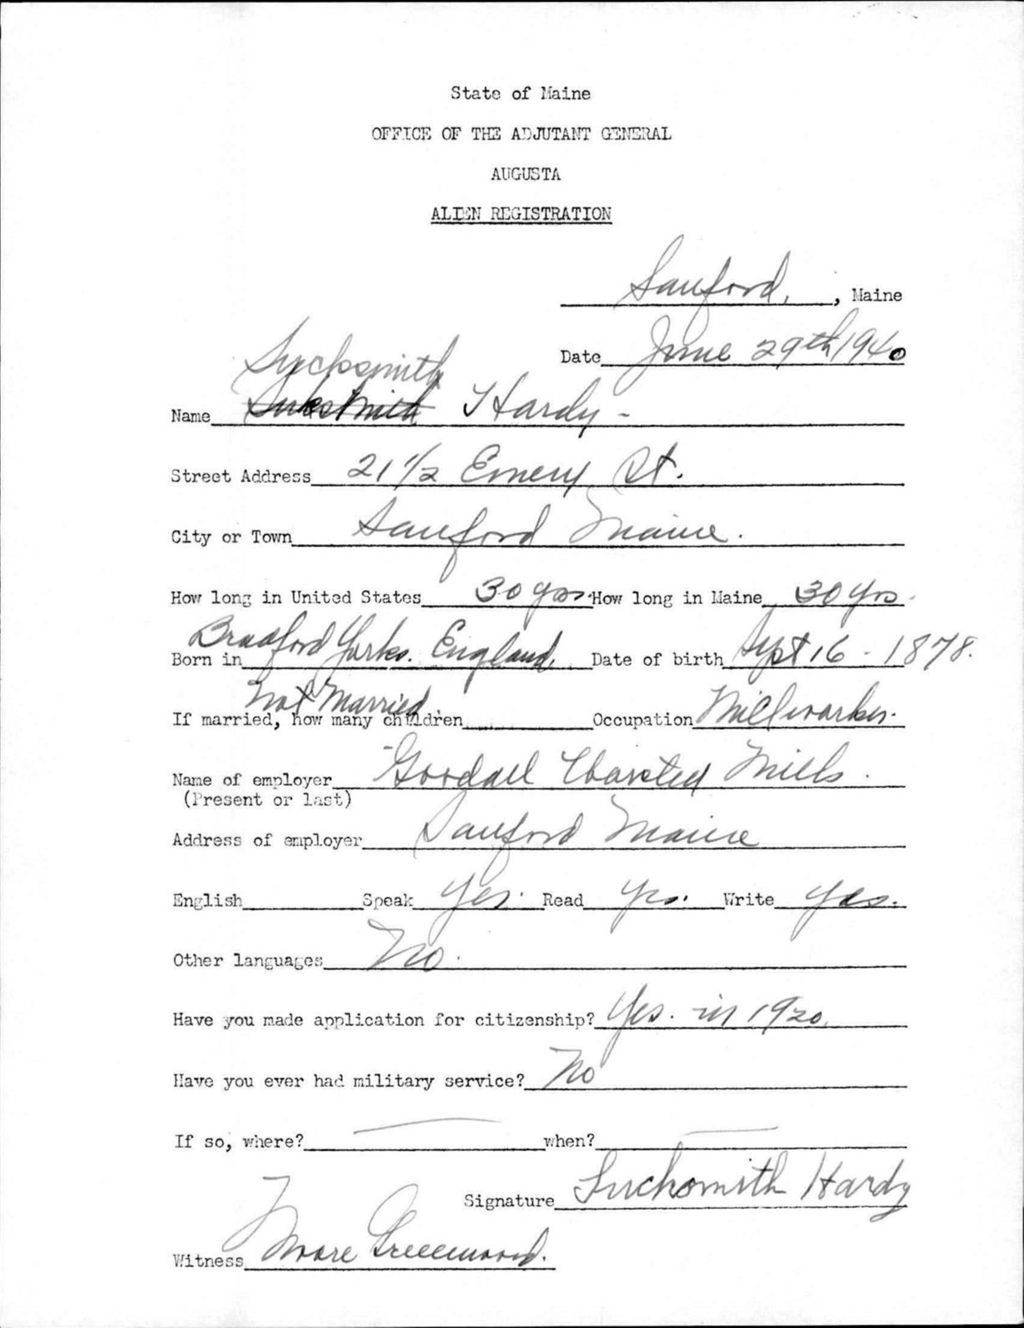 State of Maine
OFFICE OF THE ADJUTANT GENERAL
AUGUSTA
ALIEN REGISTRATION
Sanford, , Maine
Date June 29th 1940
Sucksmith
Name Hardy -
Street Address 21 1/2 Emery St.
City or Town Sanford Maine.
How long in United States 30 yrs How long in Maine 30 yrs.
Born in Bradford Yorks. England. Date of birth Sept 16 - 1878.
Not Married
If married, how many children Occupation Millworker.
Name of employer Goodall Worsted Mills.
(Present or last)
Address of employer Sanford Maine
English Speak Yes. Read Yes. Write Yes.
Other languages No.
Have you made application for citizenship? Yes. in 1920.
Have you ever had military service? No
If so, where? — when? —
Signature Sucksmith Hardy
Witness Moore Greenwood.